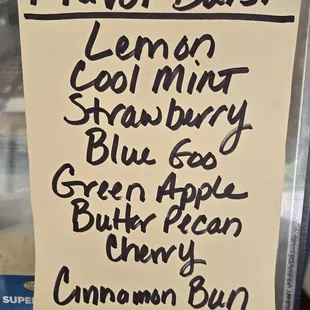 Flavor Burst
Lemon
Cool Mint
Strawberry
Blue Goo
Green Apple
Butter Pecan
Cherry
Cinnamon Bun
SUPER